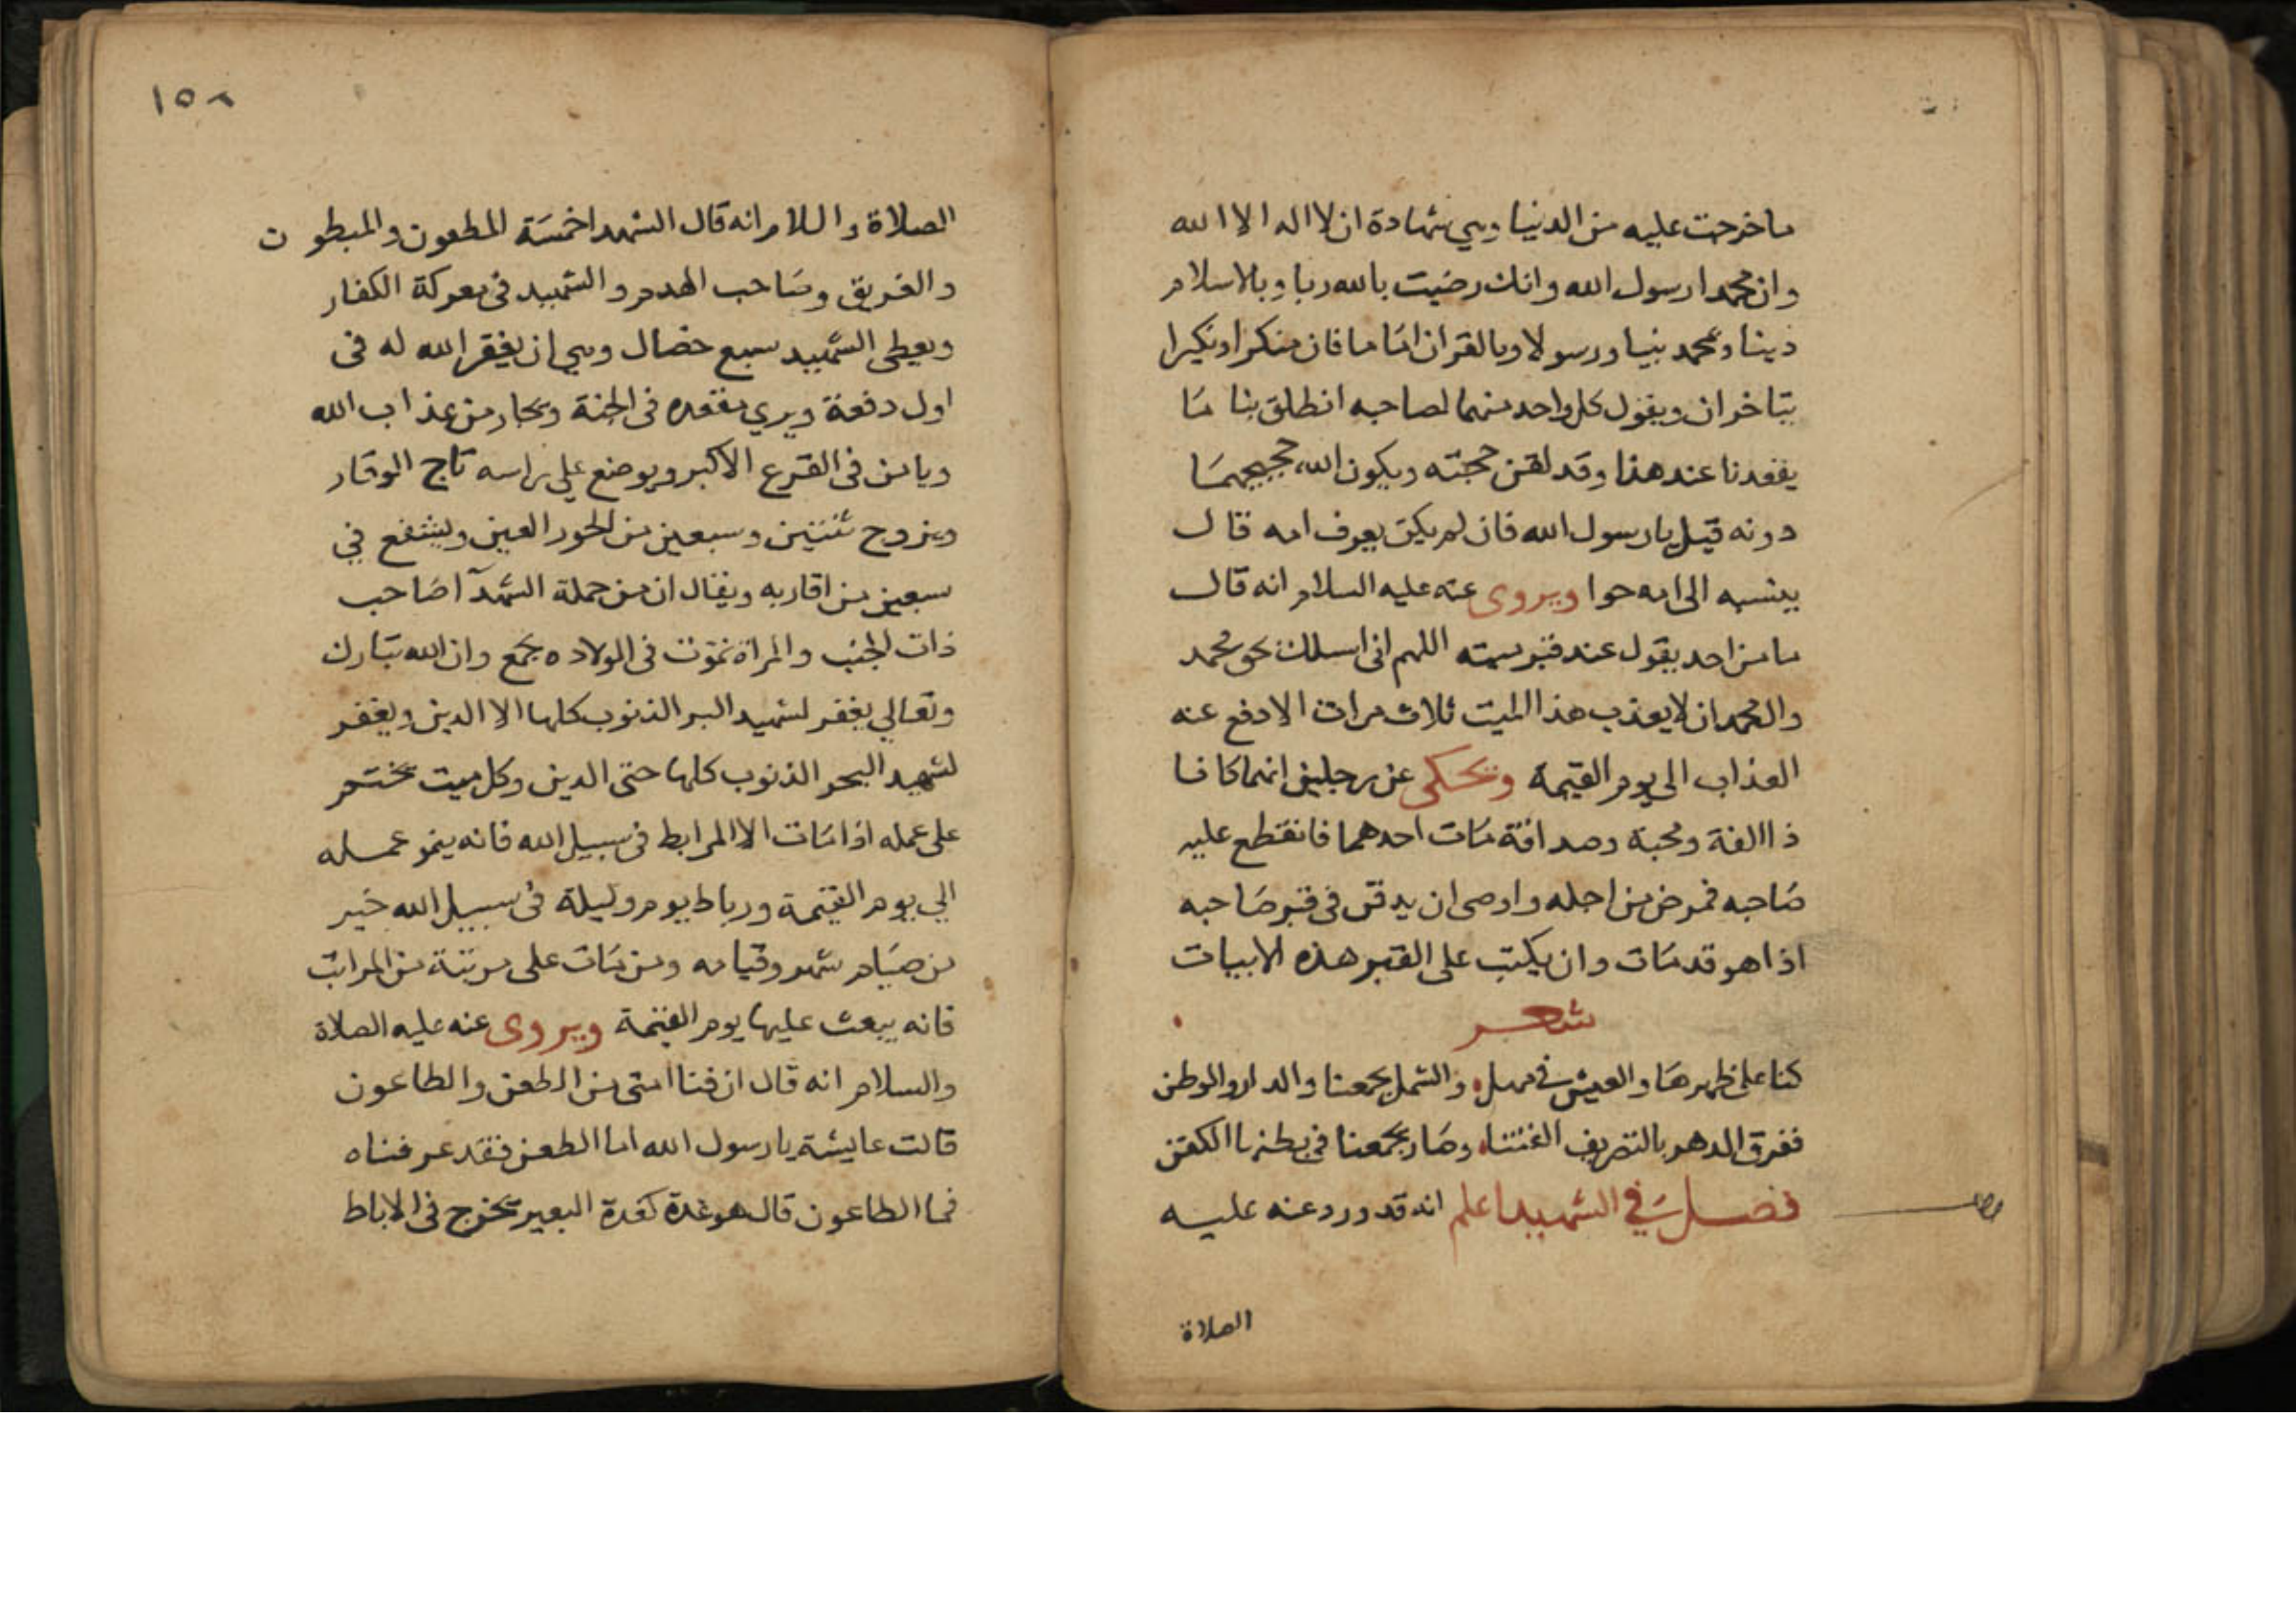 ما خرجت عليه من الدنيا وهي شهادة ان لا اله الا الله
وان محمدا رسول الله وانك رضيت بالله ربا وبالاسلام
دينا وبمحمد نبيا ورسولا وبالقران اماما فان منكرا ونكيرا
يتاخران ويقول كل واحد منهما لصاحبه انطلق بنا ما
يقعدنا عند هذا وقد لقن حجته ويكون الله حجيجهما
دونه قيل يا رسول الله فان لم يكن يعرف امه قال
ينسبه الى امه حوا ويروى عنه عليه السلام انه قال
ما من احد يقول عند قبر ميته اللهم انى اسلك بحق محمد
وال محمد ان لا يعذب هذا الميت ثلاث مرات الا دفع عنه
العذاب الى يوم القيمة ويحكى عن رجلين انهما كانا
ذا الفة ومحبة وصداقة مات احدهما فانقطع عليه
صاحبه فمرض من اجله واوصى ان يدفن فى قبر صاحبه
اذا هو قد مات وان يكتب على القبر هذه الابيات
شعر
كنا على ظهرها والعيش فى مهل والشمل يجمعنا والدار والوطن
ففرق الدهر بالتصريف الفتنا وصار يجمعنا فى بطنها الكفن
فصل فى الشهيد اعلم انه قد ورد عنه عليه
الصلاة
١٥٢
الصلاة والسلام انه قال الشهدا خمسة المطعون والمبطون
والغريق وصاحب الهدم والشهيد فى معركة الكفار
ويعطى الشهيد سبع خصال وهي ان يغفر الله له فى
اول دفعة ويري مقعده فى الجنة ويجار من عذاب الله
ويامن فى الفزع الاكبر ويوضع على راسه تاج الوقار
ويزوج ثنتين وسبعين من الحور العين ويشفع في
سبعين من اقاربه ويقال ان من جملة الشهدآ صاحب
ذات الجنب والمراة تموت فى الولاده بجمع وان الله تبارك
وتعالي يغفر لشهيد البر الذنوب كلها الا الدين ويغفر
لشهيد البحر الذنوب كلها حتى الدين وكل ميت يختم
على عمله اذا مات الا المرابط فى سبيل الله فانه ينمو عمله
الي يوم القيمة ورباط يوم وليلة فى سبيل الله خير
من صيام شهر وقيامه ومن مات على مرتبة من المراتب
فانه يبعث عليها يوم القيمة ويروى عنه عليه الصلاة
والسلام انه قال ان فنا امتى من الطعن والطاعون
قالت عايشة يا رسول الله اما الطعن فقد عرفناه
فما الطاعون قال هو غدة كغدة البعير تخرج فى الاباط